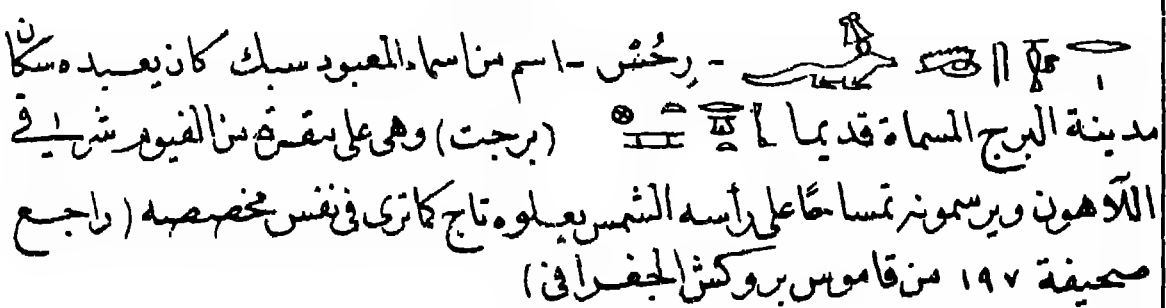 - رِحُسْ - اسم من اسماء المعبود سبك كان يعبده سكان
مدينة البرج المسماة قديما (برجت) وهى على مقربة من الفيوم شرقى
اللاهون ويرسمونه تمساحًا على رأسه الشمس يعلوه تاج كاترى فى نفس مخصصه (راجع
صحيفة ١٩٧ من قاموس بروكش الجغرافى)